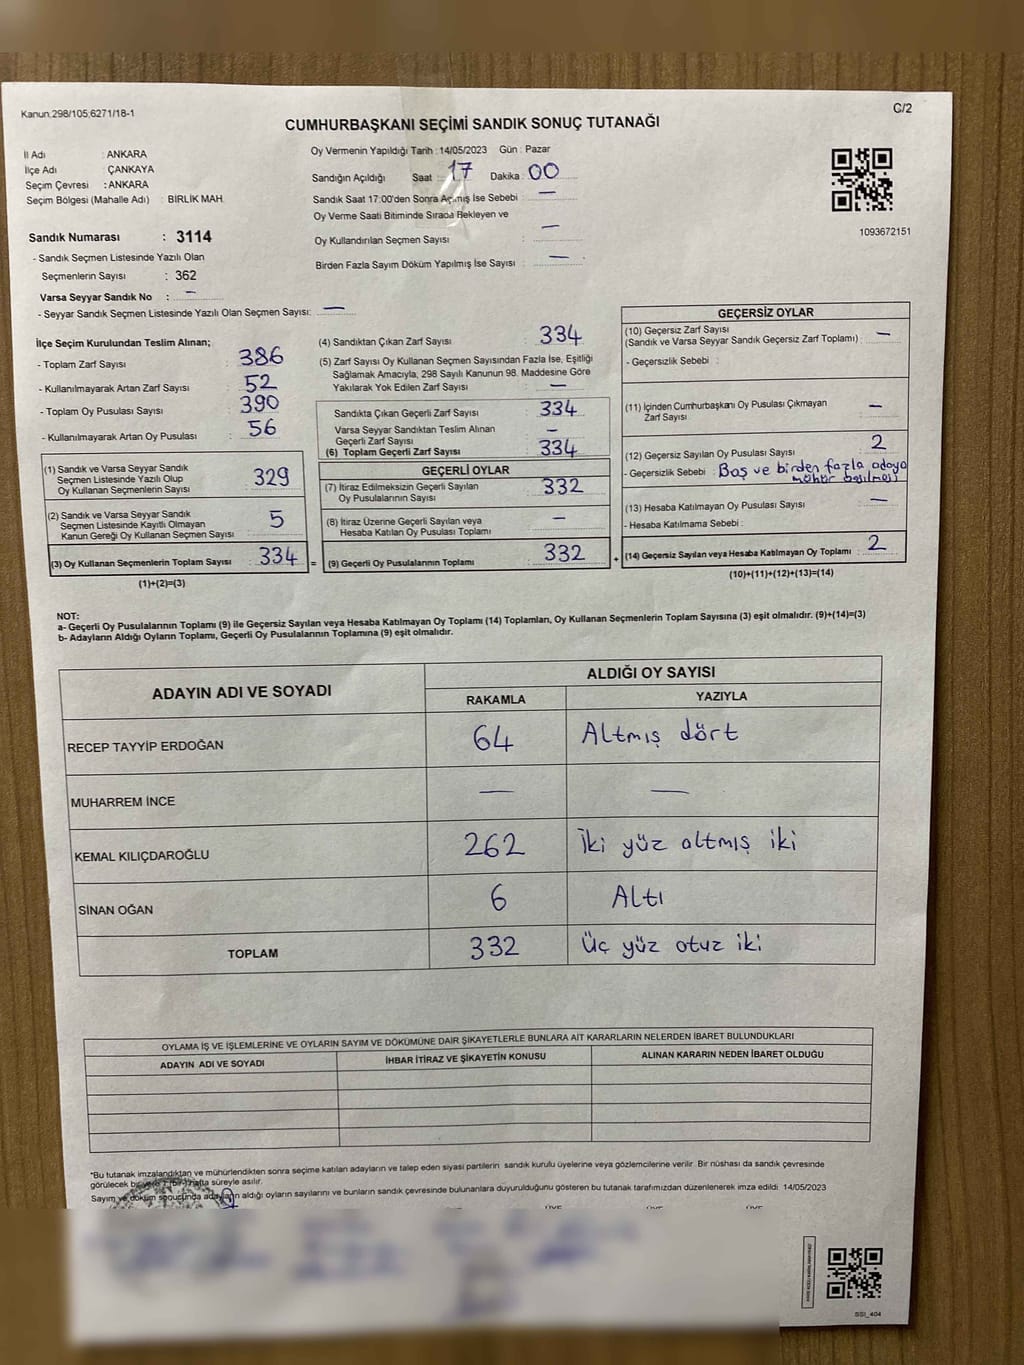 Kanun.298/105;6271/18-1
C/2
CUMHURBAŞKANI SEÇİMİ SANDIK SONUÇ TUTANAĞI
İl Adı : ANKARA
İlçe Adı : ÇANKAYA
Seçim Çevresi : ANKARA
Seçim Bölgesi (Mahalle Adı) : BİRLİK MAH.
Sandık Numarası : 3114
- Sandık Seçmen Listesinde Yazılı Olan
Seçmenlerin Sayısı : 362
Varsa Seyyar Sandık No : -
- Seyyar Sandık Seçmen Listesinde Yazılı Olan Seçmen Sayısı: -
Oy Vermenin Yapıldığı Tarih : 14/05/2023 Gün : Pazar
Sandığın Açıldığı Saat : 17 Dakika : 00
Sandık Saat 17:00'den Sonra Açılmış İse Sebebi : -
Oy Verme Saati Bitiminde Sırada Bekleyen ve
Oy Kullandırılan Seçmen Sayısı : -
Birden Fazla Sayım Döküm Yapılmış İse Sayısı : -
1093672151
İlçe Seçim Kurulundan Teslim Alınan;
- Toplam Zarf Sayısı : 386
- Kullanılmayarak Artan Zarf Sayısı : 52
- Toplam Oy Pusulası Sayısı : 390
- Kullanılmayarak Artan Oy Pusulası : 56
(1) Sandık ve Varsa Seyyar Sandık
Seçmen Listesinde Yazılı Olup
Oy Kullanan Seçmenlerin Sayısı : 329
(2) Sandık ve Varsa Seyyar Sandık
Seçmen Listesinde Kayıtlı Olmayan
Kanun Gereği Oy Kullanan Seçmen Sayısı : 5
(3) Oy Kullanan Seçmenlerin Toplam Sayısı : 334
(1)+(2)=(3)
(4) Sandıktan Çıkan Zarf Sayısı : 334
(5) Zarf Sayısı Oy Kullanan Seçmen Sayısından Fazla İse, Eşitliği
Sağlamak Amacıyla, 298 Sayılı Kanunun 98. Maddesine Göre
Yakılarak Yok Edilen Zarf Sayısı : -
Sandıkta Çıkan Geçerli Zarf Sayısı : 334
Varsa Seyyar Sandıktan Teslim Alınan
Geçerli Zarf Sayısı : -
(6) Toplam Geçerli Zarf Sayısı : 334
=
GEÇERLİ OYLAR
(7) İtiraz Edilmeksizin Geçerli Sayılan
Oy Pusulalarının Sayısı : 332
(8) İtiraz Üzerine Geçerli Sayılan veya
Hesaba Katılan Oy Pusulası Toplamı : -
(9) Geçerli Oy Pusulalarının Toplamı : 332
+
GEÇERSİZ OYLAR
(10) Geçersiz Zarf Sayısı
(Sandık ve Varsa Seyyar Sandık Geçersiz Zarf Toplamı) : -
- Geçersizlik Sebebi :
(11) İçinden Cumhurbaşkanı Oy Pusulası Çıkmayan
Zarf Sayısı : -
(12) Geçersiz Sayılan Oy Pusulası Sayısı : 2
- Geçersizlik Sebebi : Boş ve birden fazla adaya
mühür basılması
(13) Hesaba Katılmayan Oy Pusulası Sayısı : -
- Hesaba Katılmama Sebebi :
(14) Geçersiz Sayılan veya Hesaba Katılmayan Oy Toplamı : 2
(10)+(11)+(12)+(13)=(14)
NOT:
a- Geçerli Oy Pusulalarının Toplamı (9) ile Geçersiz Sayılan veya Hesaba Katılmayan Oy Toplamı (14) Toplamları, Oy Kullanan Seçmenlerin Toplam Sayısına (3) eşit olmalıdır. (9)+(14)=(3)
b- Adayların Aldığı Oyların Toplamı, Geçerli Oy Pusulalarının Toplamına (9) eşit olmalıdır.
ADAYIN ADI VE SOYADI
ALDIĞI OY SAYISI
RAKAMLA YAZIYLA
RECEP TAYYİP ERDOĞAN 64 Altmış dört
MUHARREM İNCE - -
KEMAL KILIÇDAROĞLU 262 İki yüz altmış iki
SİNAN OĞAN 6 Altı
TOPLAM 332 Üç yüz otuz iki
OYLAMA İŞ VE İŞLEMLERİNE VE OYLARIN SAYIM VE DÖKÜMÜNE DAİR ŞİKAYETLERLE BUNLARA AİT KARARLARIN NELERDEN İBARET BULUNDUKLARI
ADAYIN ADI VE SOYADI İHBAR İTİRAZ VE ŞİKAYETİN KONUSU ALINAN KARARIN NEDEN İBARET OLDUĞU
*Bu tutanak imzalandıktan ve mühürlendikten sonra seçime katılan adayların ve talep eden siyasi partilerin sandık kurulu üyelerine veya gözlemcilerine verilir. Bir nüshası da sandık çevresinde
görülecek bir yere 1 (bir) hafta süreyle asılır.
Sayım ve döküm sonucunda adayların aldığı oyların sayılarını ve bunların sandık çevresinde bulunanlara duyurulduğunu gösteren bu tutanak tarafımızdan düzenlenerek imza edildi 14/05/2023
ÜYE ÜYE ÜYE
SSI_404